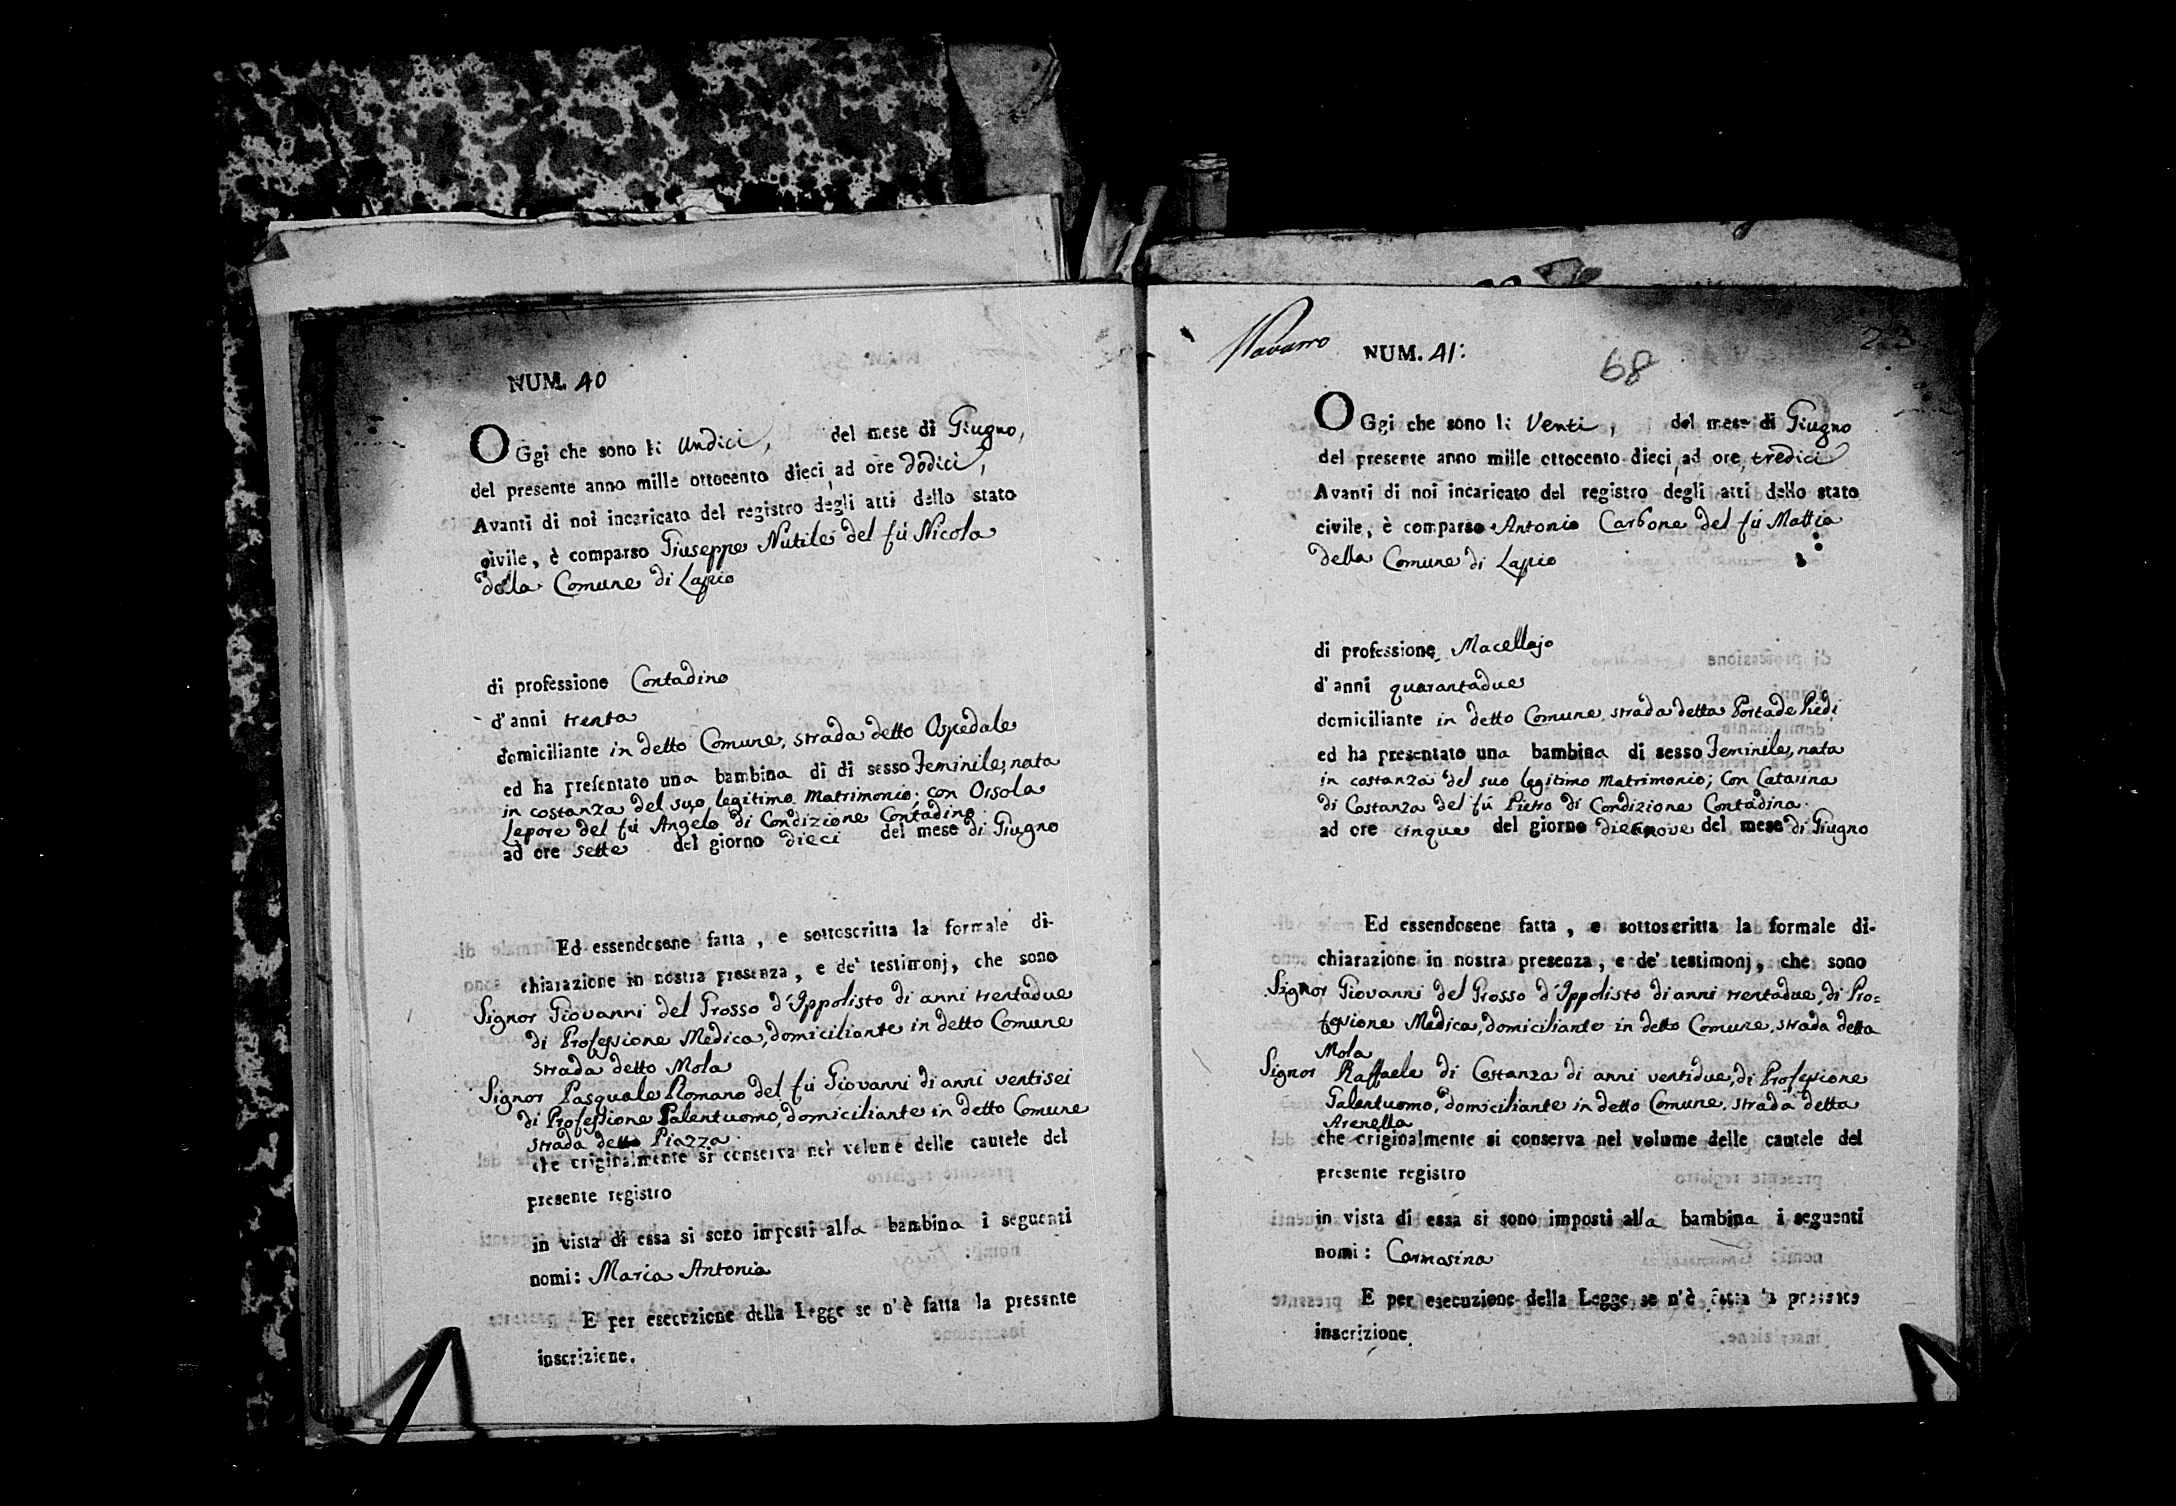 NUM. 40
OGgi che sono li Undici, del mese di Giugno,
del presente anno mille ottocento dieci, ad ore dodici,
Avanti di noi incaricato del registro degli atti dello stato
civile, è comparso Giuseppe Nutile del fù Nicola
della Comune di Lapio
di professione Contadino
d'anni trenta
domiciliante in detto Comune, strada detto Ospedale
ed ha presentato una bambina di di sesso Feminile, nata
in costanza del suo legitimo Matrimonio; con Orsola
Lepore del fù Angelo di Condizione Contadina
ad ore sette del giorno dieci del mese di Giugno
Ed essendosene fatta, e sottoscritta la formale di-
chiarazione in nostra presenza, e de' testimonj, che sono
Signor Giovanni del Grosso d'Ippolisto di anni trentadue
di Professione Medica, domiciliante in detto Comune
strada detto Mola
Signor Pasquale Romano del fù Giovanni di anni ventisei
di Professione Galentuomo, domiciliante in detto Comune
strada detto Piazza
che originalmente si conserva nel volume delle cautele del
presente registro
in vista di essa si sono imposti alla bambina i seguenti
nomi: Maria Antonia
E per esecuzione della Legge se n'è fatta la presente
inscrizione.
Navarro NUM. 41:
68
23
OGgi che sono li Venti, del mese di Giugno
del presente anno mille ottocento dieci, ad ore, tredici
Avanti di noi incaricato del registro degli atti dello stato
civile, è comparso Antonio Carbone del fù Mattia
della Comune di Lapio
di professione Macellajo
d'anni quarantadue
domiciliante in detto Comune, strada detta Porta de Piedi
ed ha presentato una bambina di sesso Feminile, nata
in costanza del suo legitimo Matrimonio; Con Catarina
di Costanza del fù Pietro di Condizione Contadina.
ad ore cinque del giorno diecinove del mese di Giugno
Ed essendosene fatta, e sottoscritta la formale di-
chiarazione in nostra presenza, e de' testimonj, che sono
Signor Giovanni del Grosso d'Ippolisto di anni trentadue, di Pro=
fessione Medica, domiciliante in detto Comune, strada detta
Mola
Signor Raffaele di Costanza di anni ventidue, di Professione
Galentuomo, domiciliante in detto Comune, strada detta
Arenella
che originalmente si conserva nel volume delle cautele del
presente registro
in vista di essa si sono imposti alla bambina i seguenti
nomi: Carmosina
E per esecuzione della Legge se n'è fatta la presente
inscrizione.